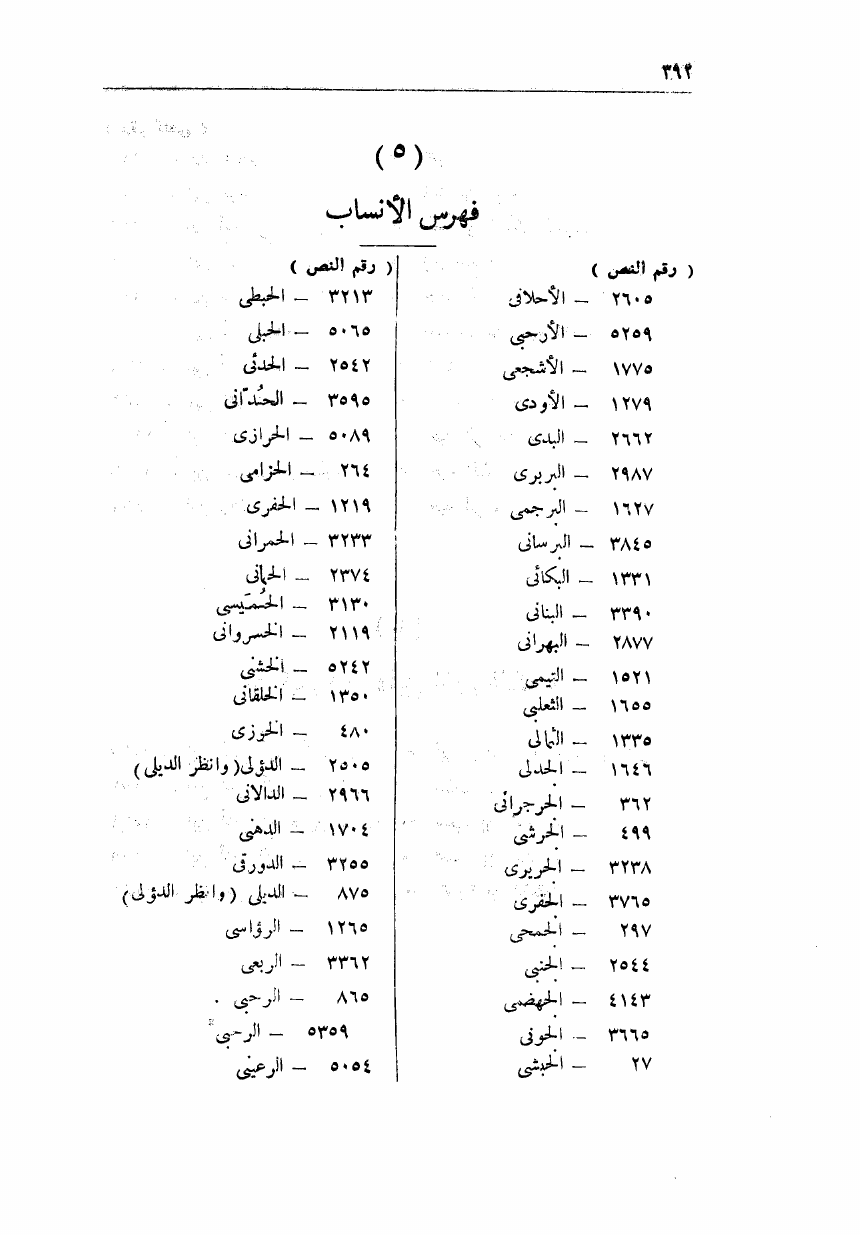 ٣٩٢
( ٥ )
فهرس الأنساب
( رقم النص )
٢٦٠٥ – الأحلافى
٥٢٥٩ – الأرحبى
١٧٧٥ – الأشجعى
١٢٧٩ – الأودى
٢٦٦٢ – البدى
٢٩٨٧ – البربرى
١٦٢٧ – البرجمى
٣٨٤٥ – البرسانى
١٣٣١ – البكائى
٣٣٩٠ – البنانى
٢٨٧٧ – البهرانى
١٥٢١ – التيمى
١٦٥٥ – الثعلبى
١٣٣٥ – الثمالى
١٦٤٦ – الجدلى
٣٦٢ – الجرجرائى
٤٩٩ – الجرشى
٣٢٣٨ – الجريرى
٣٧٦٥ – الجفرى
٢٩٧ – الجمحى
٢٥٤٤ – الجنبى
٤١٤٣ – الجهضمى
٣٦٦٥ – الجونى
٢٧ – الحبشى
( رقم النص )
٣٢١٣ – الحبطى
٥٠٦٥ – الحبلى
٢٥٤٢ – الحدثى
٣٥٩٥ – الحُدّانى
٥٠٨٩ – الحرازى
٢٦٤ – الحزامى
١٢١٩ – الحفرى
٣٢٣٣ – الحمرانى
٢٣٧٤ – الحمانى
٣١٣٠ – الحُمَيسى
٢١١٩ – الخسروانى
٥٢٤٢ – الخشنى
١٣٥٠ – الخلقانى
٤٨٠ – الخوزى
٢٥٠٥ – الدؤلى (وانظر الديلى)
٢٩٦٦ – الدالانى
١٧٠٤ – الدهنى
٣٢٥٥ – الدورقى
٨٧٥ – الديلى (وانظر الدؤلى)
١٢٦٥ – الرؤاسى
٣٣٦٢ – الربعى
٨٦٥ – الرحبى
٥٣٥٩ – الرحبى
٥٠٥٤ – الرعينى